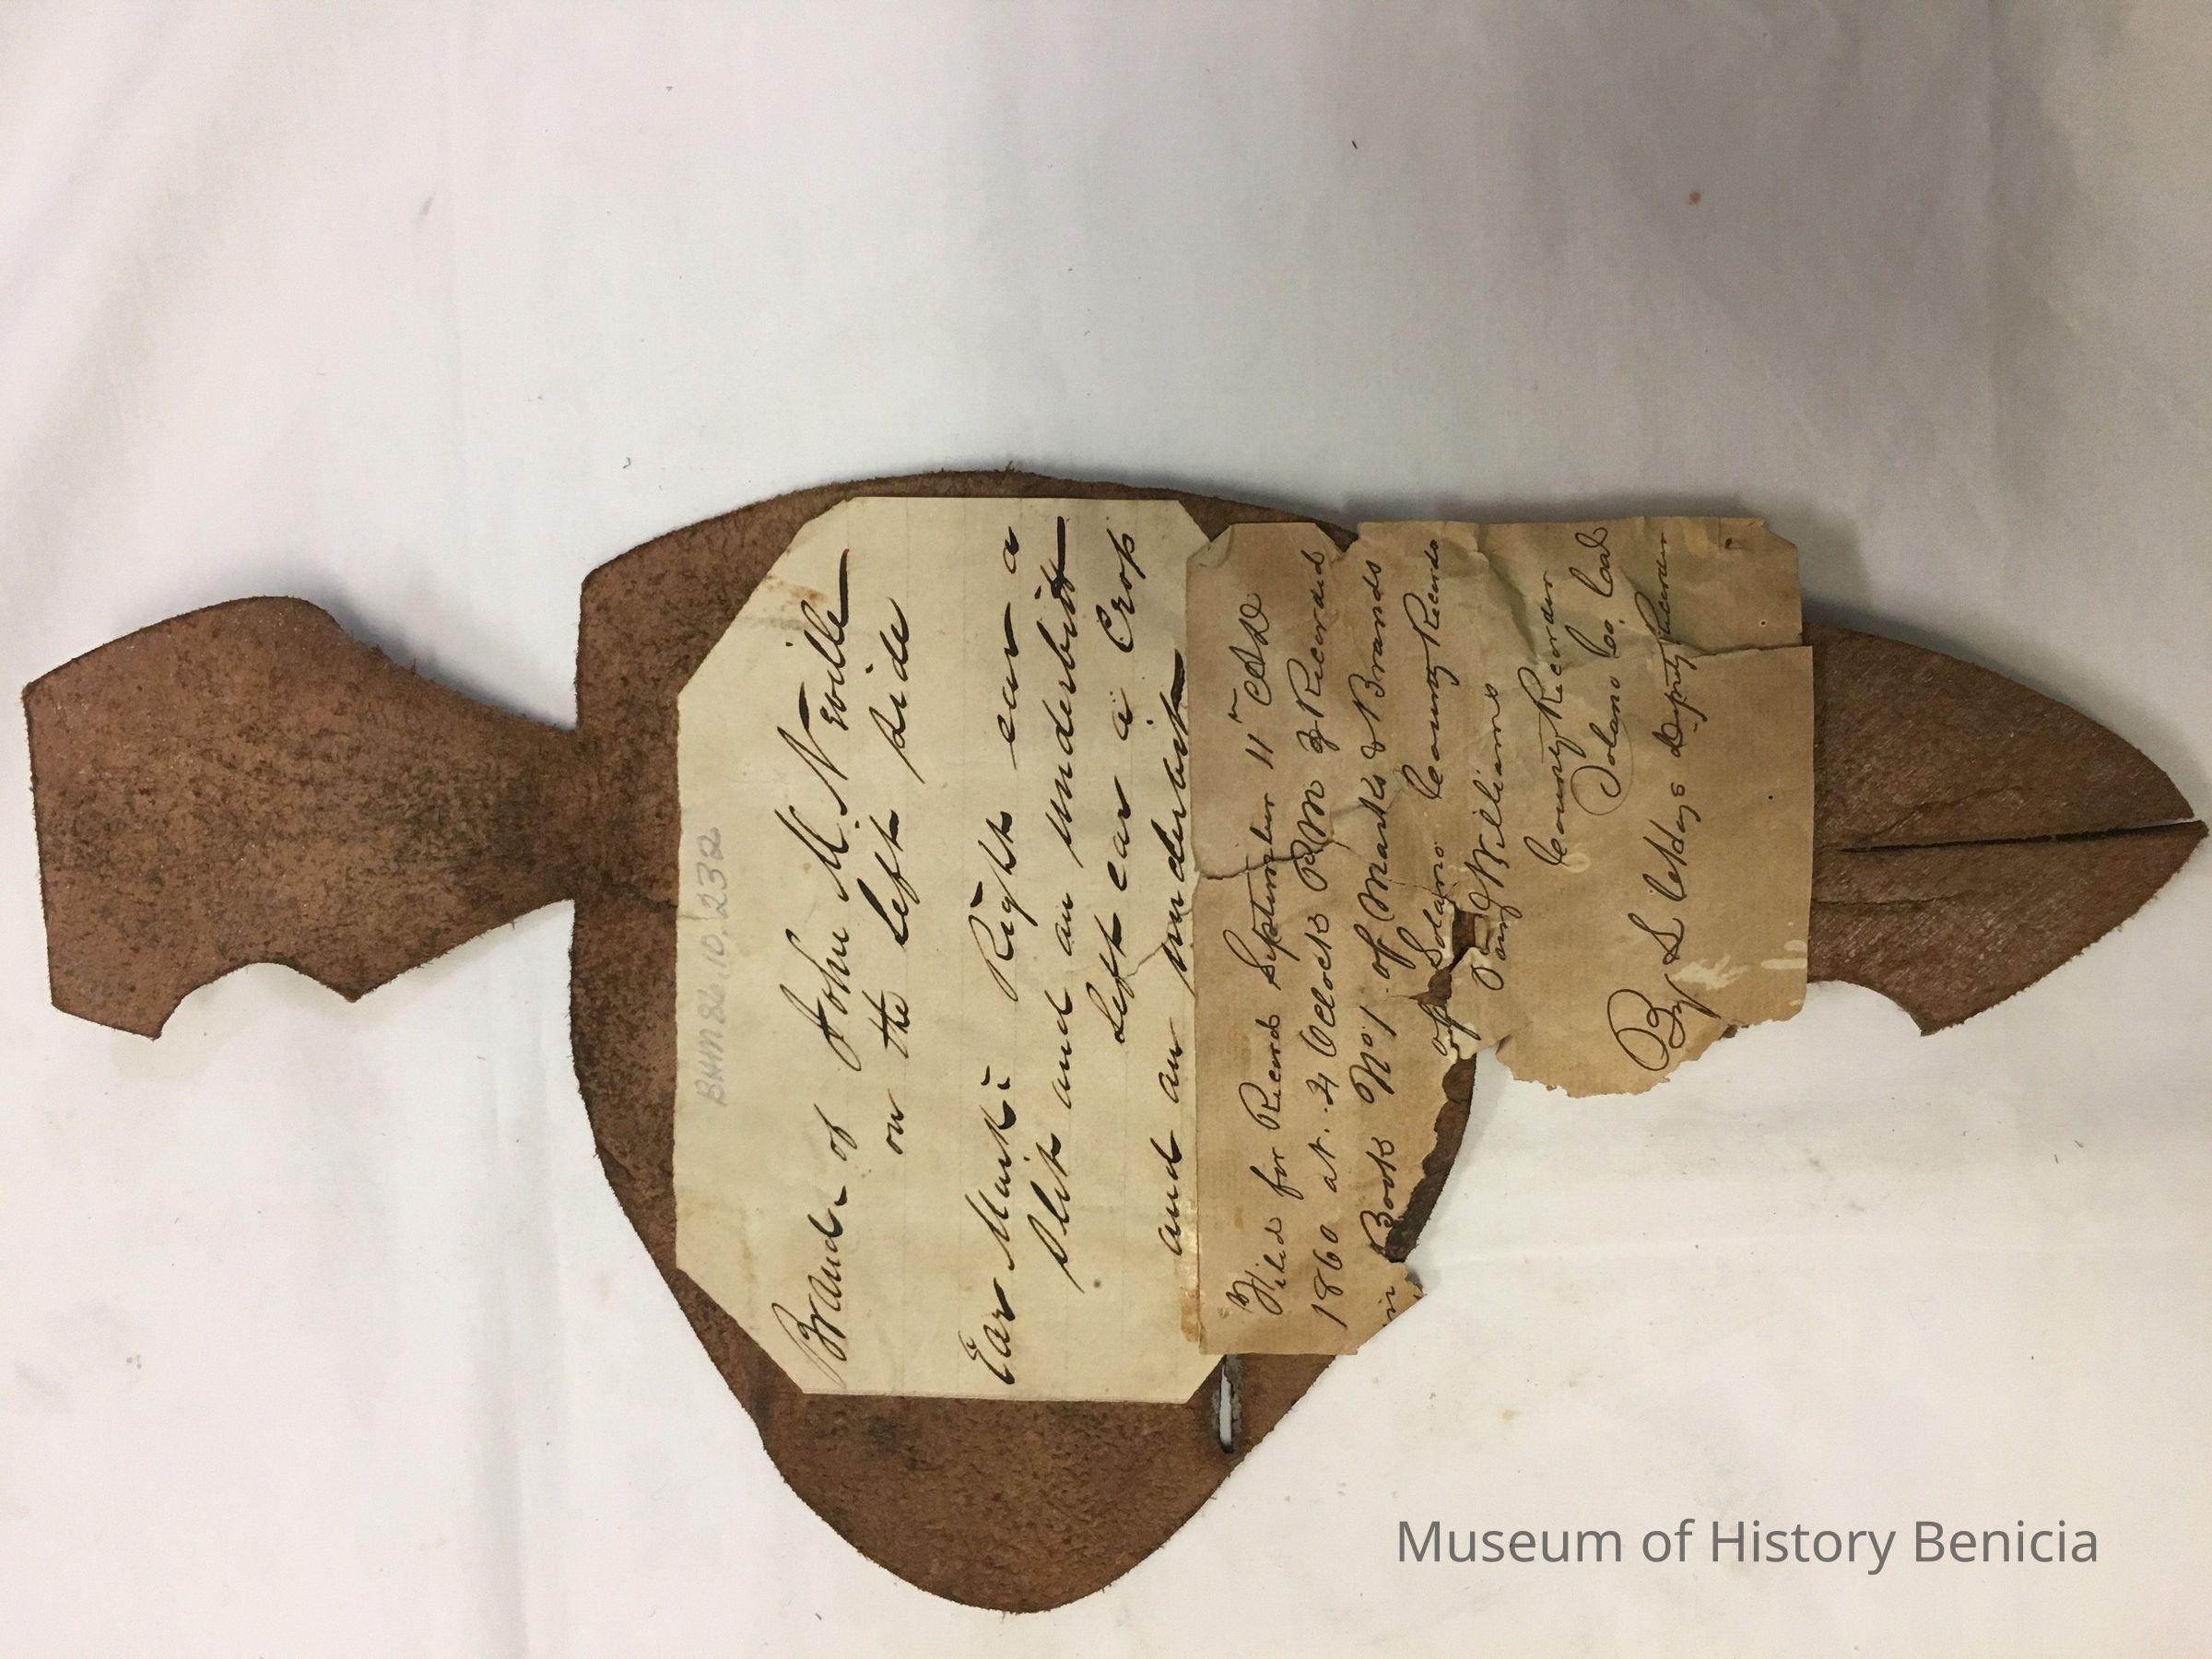 BHM 86.10.232
Brand of John M. Neville
on the left side
Ear Mark: Right ear a
slit and an underbitt
left ear a Crop
and an underbitt
Filed for Record September 11th AD
1860 at 4 Oclock PM & Recorded
in Book No 1 of Marks & Brands
of Solano County Records
Williams
County Recorder
Solano Co. Cal
By S Deputy Recorder
Museum of History Benicia